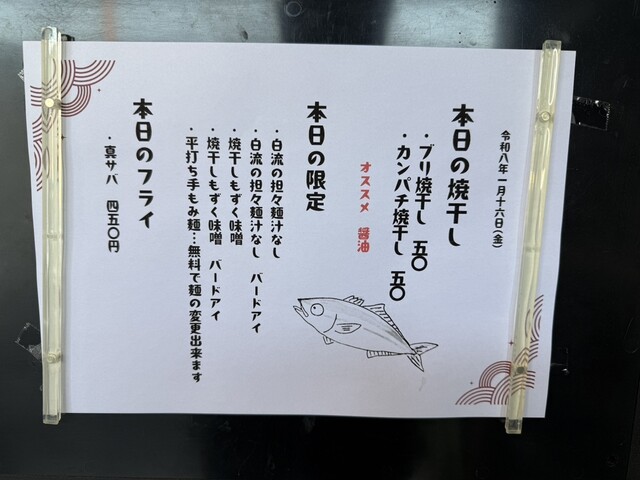 令和八年一月十六日(金)
本日の焼干し
・ブリ焼干し 五〇
・カンパチ焼干し 五〇
オススメ 醤油
本日の限定
・白流の担々麺汁なし
・白流の担々麺汁なし バードアイ
・焼干しもずく味噌
・焼干しもずく味噌 バードアイ
・平打ち手もみ麺…無料で麺の変更出来ます
本日のフライ
・真サバ 四五〇円